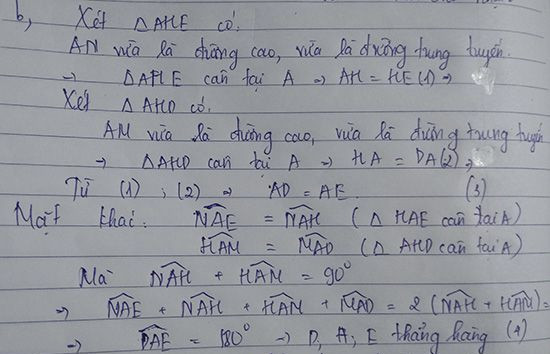 b, Xét △AHE có.
AN vừa là đường cao, vừa là đường trung tuyến.
→ △AHE cân tại A → AH = HE (1) →
Xét △AHD có.
AM vừa là đường cao, vừa là đường trung tuyến
→ △AHD cân tại A → HA = DA (2) →
Từ (1) ; (2) → AD = AE. (3)
Mặt khác: \widehat{NAE} = \widehat{NAH} (△ HAE cân tại A)
\widehat{HAM} = \widehat{MAD} (△ AHD cân tại A)
Mà \widehat{NAH} + \widehat{HAM} = 90°
→ \widehat{NAE} + \widehat{NAH} + \widehat{HAM} + \widehat{MAD} = 2 (\widehat{NAH} + \widehat{HAM}) =
→ \widehat{DAE} = 180° → D, A, E thẳng hàng (4)